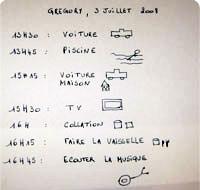 GREGORY, 3 JUILLET 2008
13H30 : VOITURE
13H45 : PISCINE
15H15 : VOITURE
MAISON
15H30 : TV
16H : COLLATION
16H15 : FAIRE LA VAISSELLE
16H45 : ECOUTER LA MUSIQUE